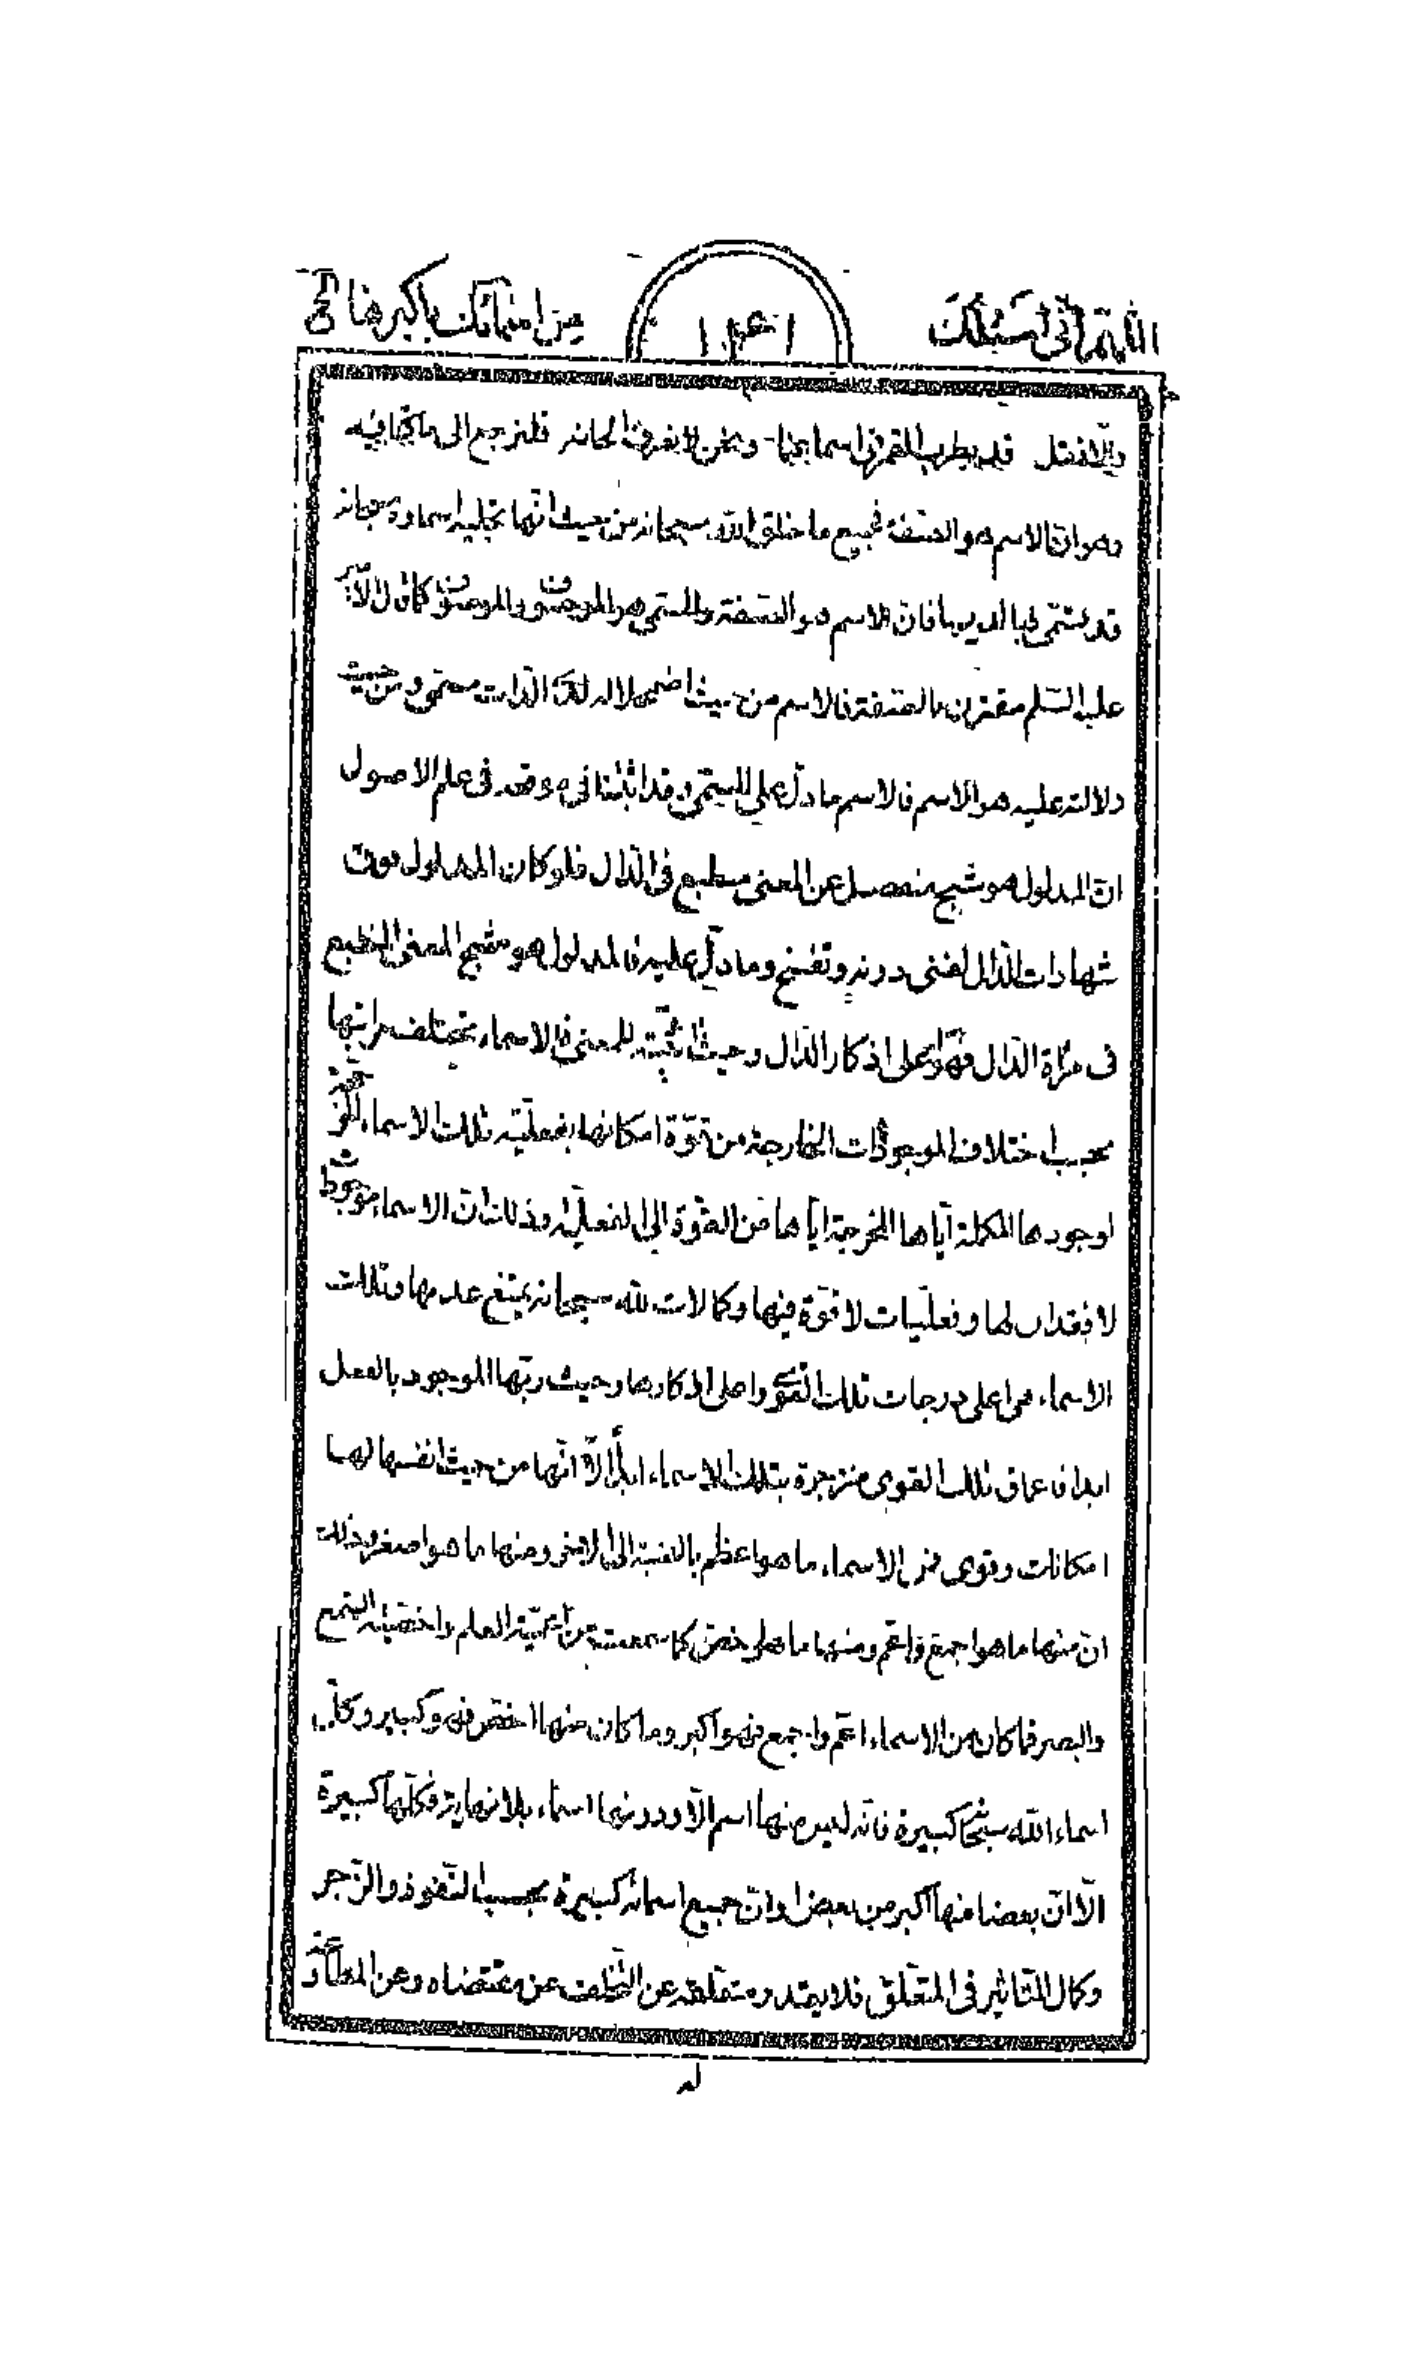 اللهم انی اسئلک من اسمائک باکبرها الخ
والا فقل قد يطرب القمری اسماعنا ونحن لا نعرف الحانه فلنرجع الی ما کنا فيه
وهو ان الاسم هو الصفة فجميع ما خلق الله سبحانه من حيث انها تجليه اسماؤه سبحانه
قد تسمی بها لديها فان الاسم هو الصفة والمسمی هو الموصوف والموصوف کما قال الامير
عليه السلم مقترن بالصفة فالاسم من حيث اضمحلاله لدی الذات مسمی ومن حيث
دلالته عليه هو الاسم فالاسم ما دل علی المسمی وقد اثبتنا فی موقعه فی علم الاصول
ان المدلول هو شبح منفصل عن المعنی منطبع فی الدال فلو کان المدلول فوت
شهادات الدال لفنی دونه وتفسخ وما دل عليه فالمدلول هو شبح المعنی المنطبع
فی مرآة الدال فهو اعلی اذکار الدال وحيث للمعنی فالاسماء تختلف مراتبها
بحسب اختلاف الموجودات الخارجة من قوة امکانها بفعلية تلک الاسماء
لوجودها المکملة اياها المخرجة اياها من القوة الی الفعلية وذلک ان الاسماء موجودات
لا فقدان لها وفعليات لا قوة فيها وکمالات لله سبحانه يمتنع عدمها وتلک
الاسماء هی اعلی درجات تلک القوی واعلی اذکارها وحيث ربها الموجود بالفعل
ابدا فاعماق تلک القوی منزجرة بتلک الاسماء ابدا الا انها من حيث انفسها لها
امکانات وقوی فمن الاسماء ما هو اعظم بالنسبة الی الاخر ومنها ما هو اصغر وذلک
ان منها ما هو اجمع واعم ومنها ما هو اخص کما سمعت من اعمية العلم واخصية السمع
والبصر فما کان من الاسماء اعم واجمع فهو اکبر وما کان منها اخص فهو کبير وکل
اسماء الله سبحانه کبيرة فانه ليس منها اسم الا ودونها اسماء بلا نهاية فکلها کبيرة
الا ان بعضا منها اکبر من بعض وان جميع اسمائه کبيرة بحسب النفوذ والزجر
وکمال التاثير فی المتعلق فلا يقدر متعلقه عن التخلف عن مقتضاه وعن المطاوعة
له